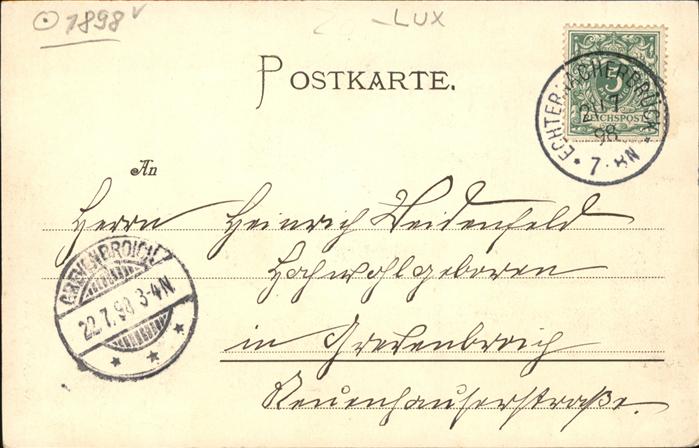 1898
-LUX
POSTKARTE.
5
REICHSPOST
ECHTERNACHERBRÜCK
21/7
98
7-8N
An
Herrn Heinrich Weidenfeld
Hochwohlgeboren
in Grevenbroich
Neuenhauserstraße.
GREVENBROICH
22.7.98 3-4N.